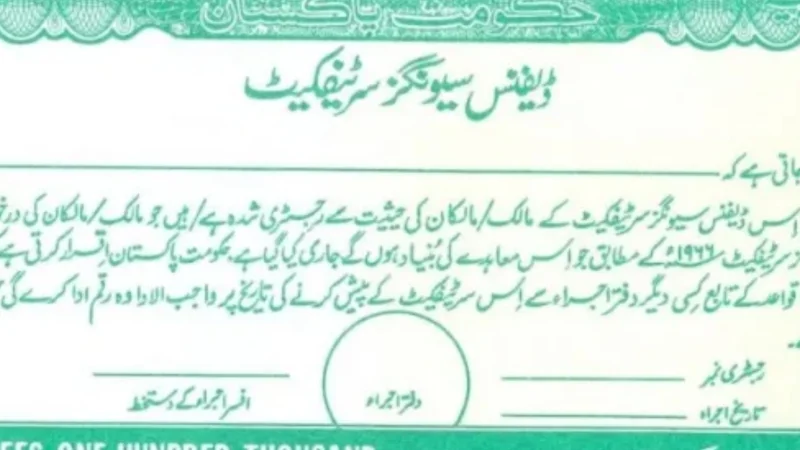 حکومت پاکستان
ڈیفنس سیونگز سرٹیفکیٹ
جاتی ہے کہ
اس ڈیفنس سیونگز سرٹیفکیٹ کے مالک/مالکان کی حیثیت سے رجسٹری شدہ ہے/ہیں جو مالک/مالکان کی
سرٹیفکیٹ ۱۹۶۶ء کے مطابق جو اِس معاہدے کی بُنیاد ہوں گے جاری کیا گیا ہے۔ حکومت پاکستان اِقرار کرتی ہے
قواعد کے تابع کِسی دیگر دفتر اجراء سے اِس سرٹیفکیٹ کے پیش کرنے کی تاریخ پر واجب الادا وہ رقم ادا کرے گی
رجسٹری نمبر
تاریخ اجراء
دفتر اجراء
افسر اجراء کے دستخط
ONE HUNDRED THOUSAND